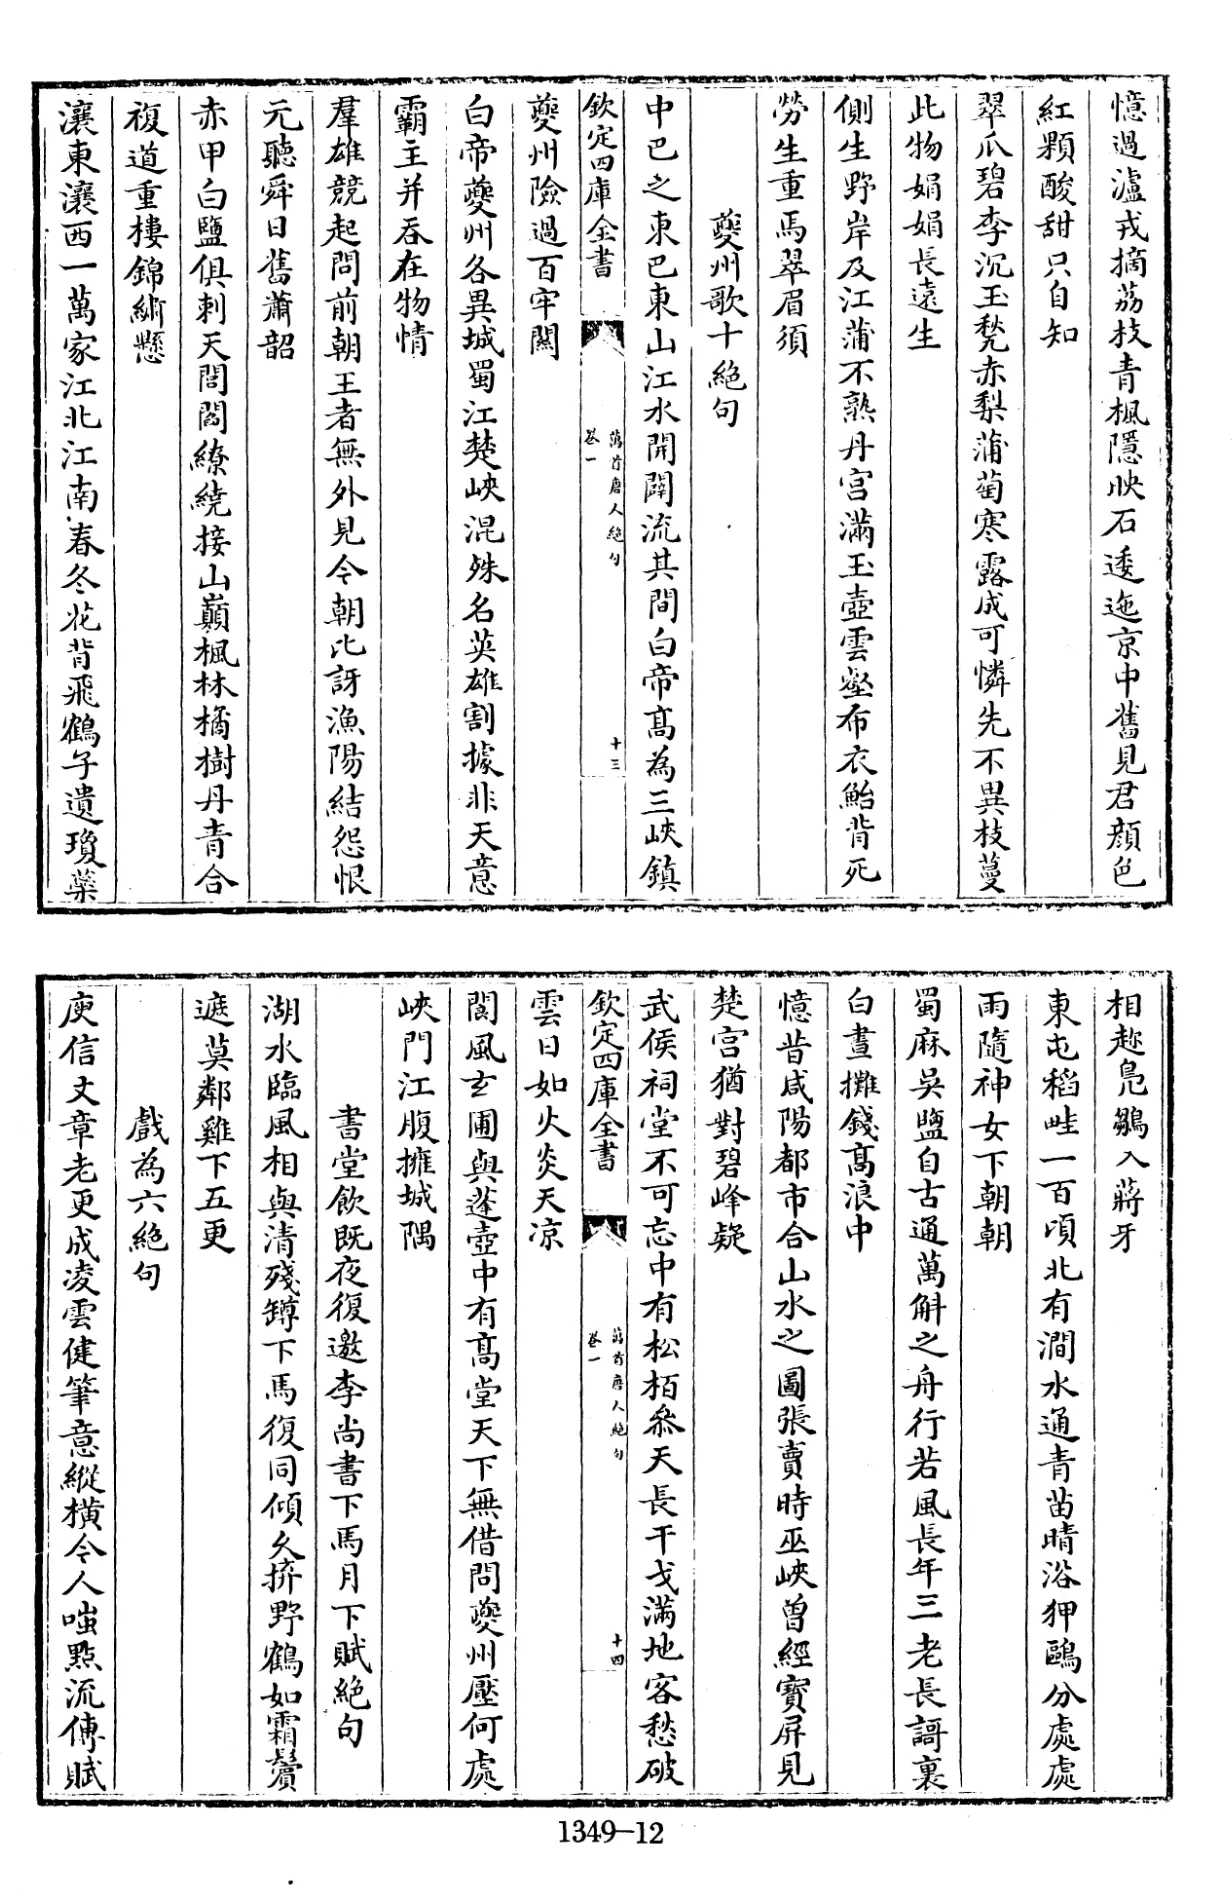 憶過瀘戎摘荔枝青楓隱映石逶迤京中舊見君顔色
紅顆酸甜只自知
翠瓜碧李沉玉甃赤梨蒲萄寒露成可憐先不異枝蔓
此物娟娟長遠生
側生野岸及江蒲不熟丹宫滿玉壺雲壑布衣鮐背死
勞生重馬翠眉須
夔州歌十絶句
中巴之東巴東山江水開闢流其間白帝髙為三峽鎮
欽定四庫全書
萬首唐人絶句
卷一
十三
夔州險過百牢關
白帝夔州各異城蜀江楚峽混殊名英雄割據非天意
霸主并吞在物情
羣雄競起問前朝王者無外見今朝比訝漁陽結怨恨
元聽舜日舊蕭韶
赤甲白鹽俱刺天閭閻繚繞接山巔楓林橘樹丹青合
複道重樓錦繡懸
瀼東瀼西一萬家江北江南春冬花背飛鶴子遺瓊蘂
相趂鳬鶵入蔣牙
東屯稻畦一百頃北有澗水通青苗晴浴狎鷗分處處
雨隨神女下朝朝
蜀麻吳鹽自古通萬斛之舟行若風長年三老長謌裏
白晝攤錢髙浪中
憶昔咸陽都市合山水之圖張賣時巫峽曾經寶屏見
楚宫猶對碧峰疑
武侯祠堂不可忘中有松栢叅天長干戈滿地客愁破
欽定四庫全書
萬首唐人絶句
卷一
十四
雲日如火炎天凉
閬風玄圃與蓬壺中有髙堂天下無借問夔州壓何處
峽門江腹擁城隅
書堂飲既夜復邀李尚書下馬月下賦絶句
湖水臨風相與清殘罇下馬復同傾久拚野鶴如霜鬢
遮莫鄰雞下五更
戲為六絶句
庾信文章老更成凌雲健筆意縱横今人嗤㸃流傳賦
1349-12